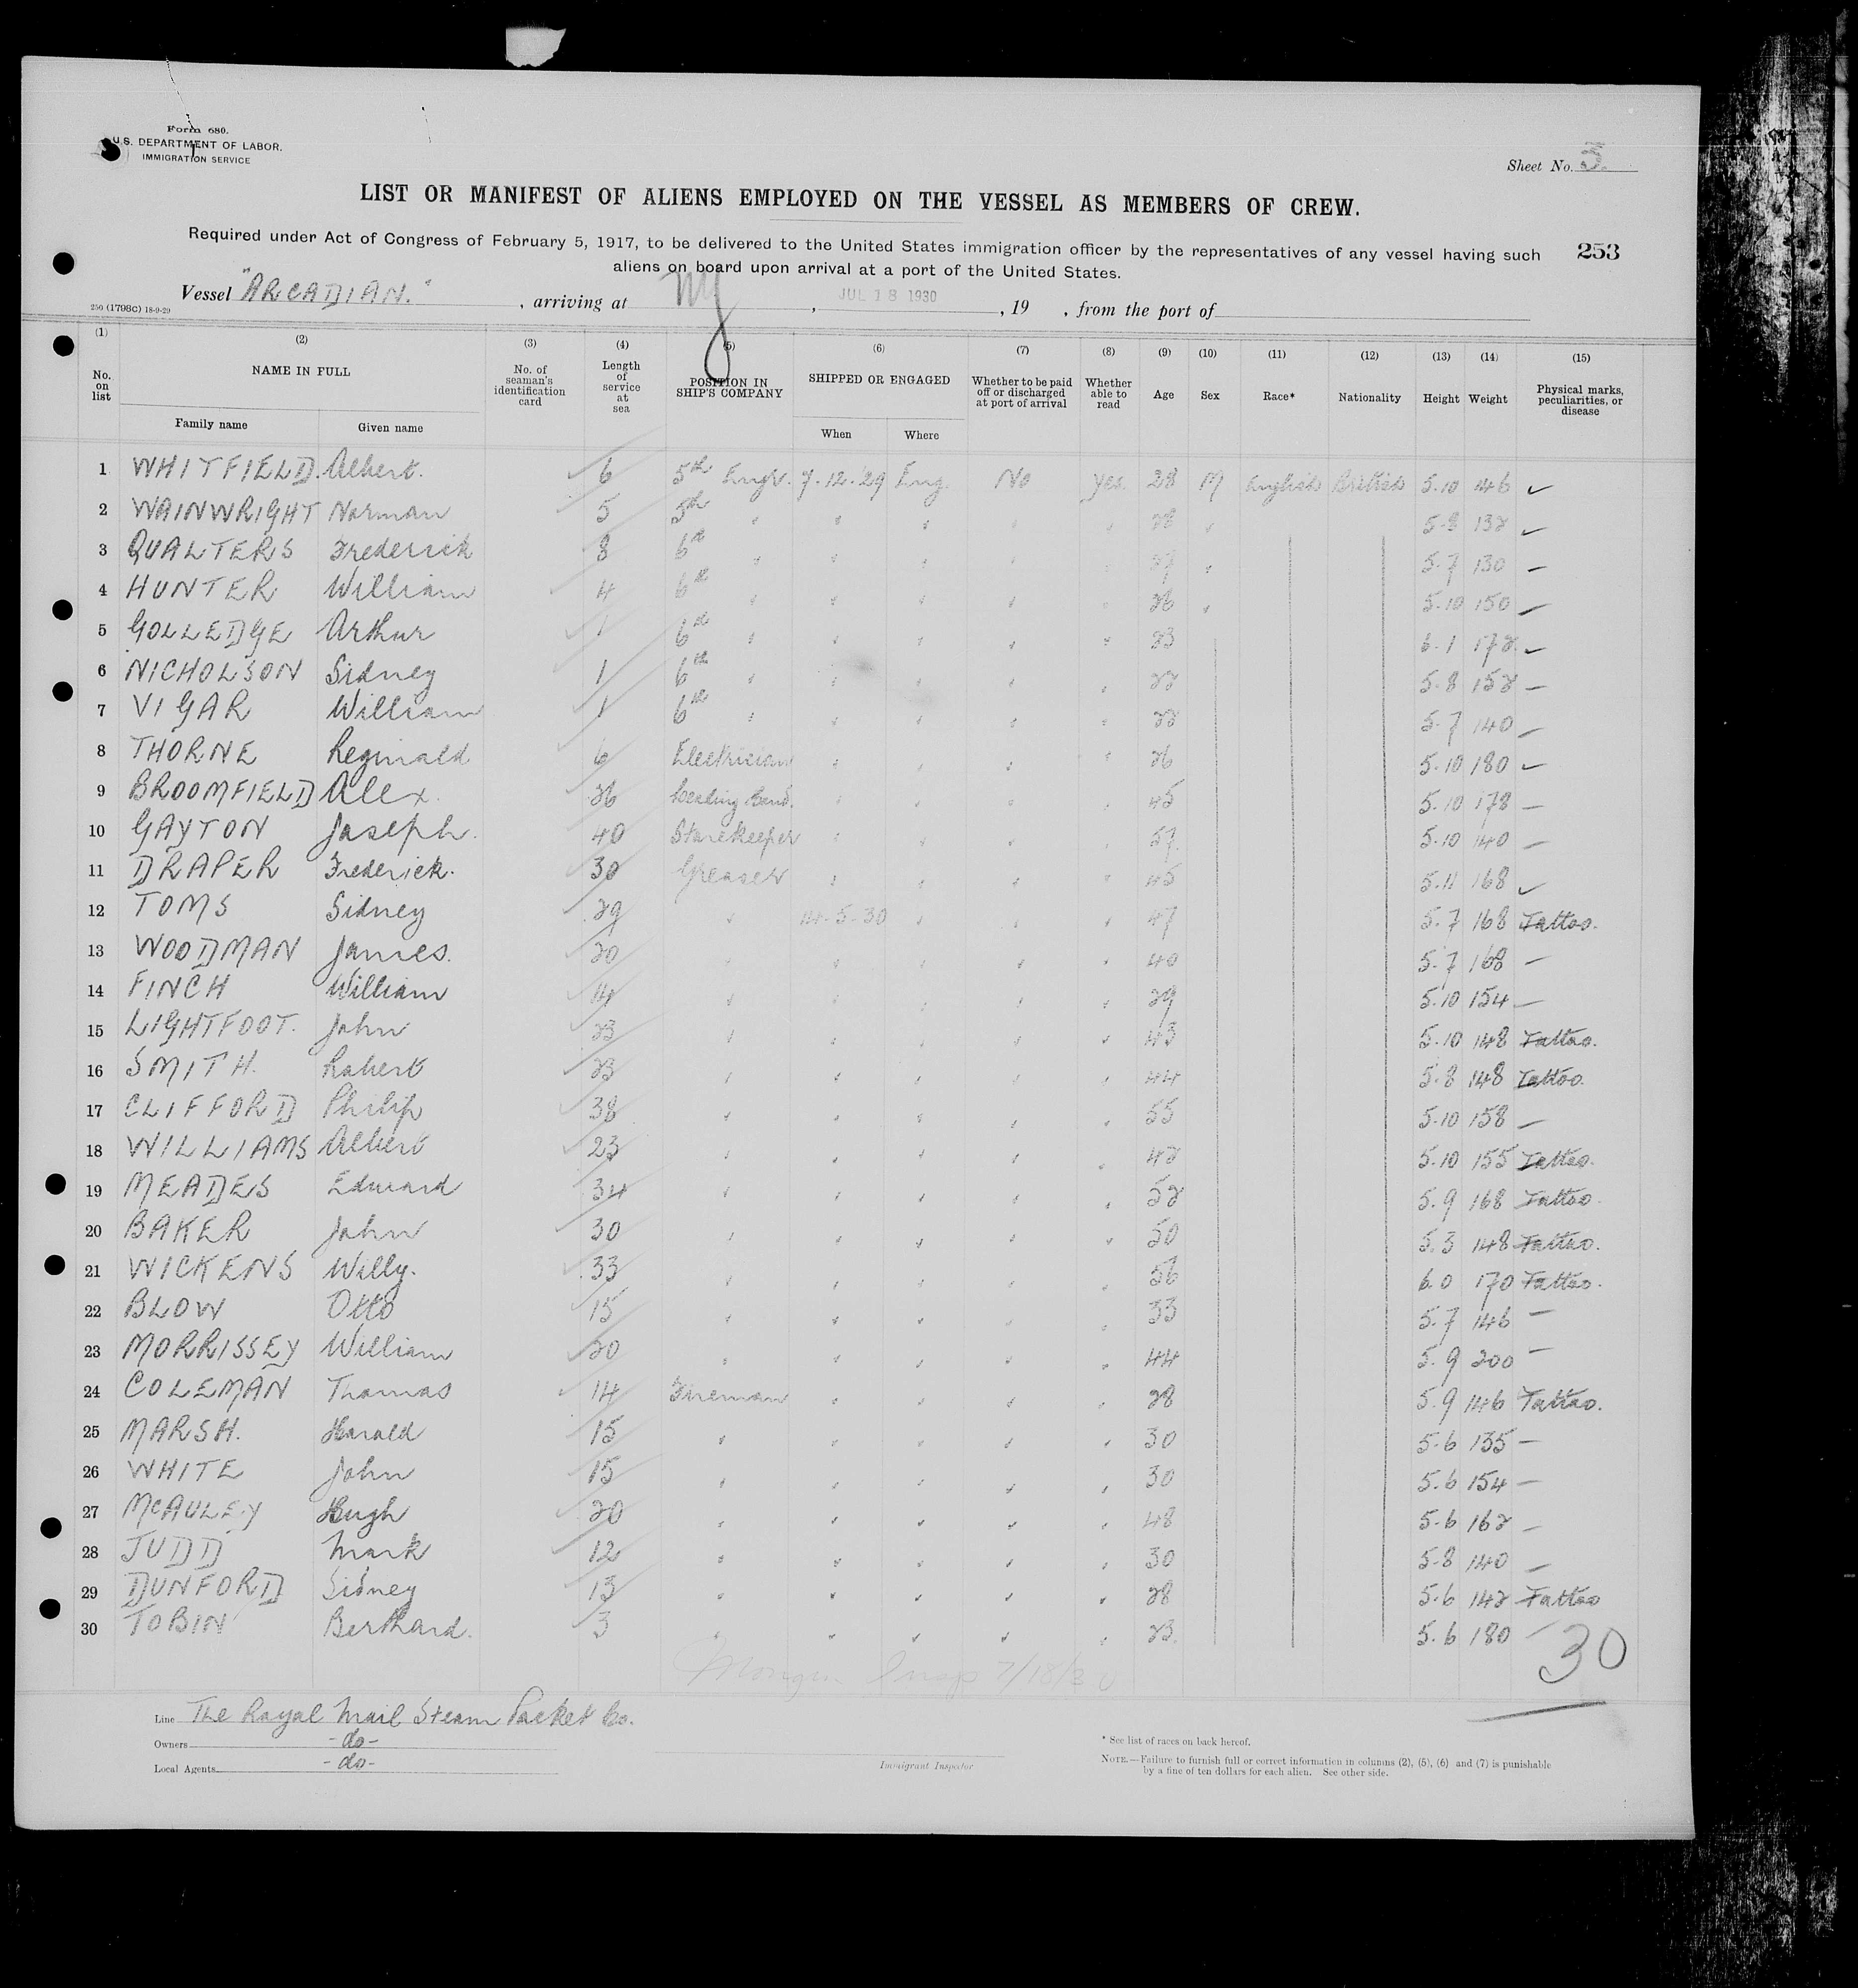 Form 680.
U.S. DEPARTMENT OF LABOR.
IMMIGRATION SERVICE
Sheet No. 3.
LIST OR MANIFEST OF ALIENS EMPLOYED ON THE VESSEL AS MEMBERS OF CREW.
Required under Act of Congress of February 5, 1917, to be delivered to the United States immigration officer by the representatives of any vessel having such
253
aliens on board upon arrival at a port of the United States.
Vessel "ARCADIAN." , arriving at NY , JUL 18 1930 , 19 , from the port of
250 (1798C) 18-9-29
(1) (2) (3) (4) (5) (6) (7) (8) (9) (10) (11) (12) (13) (14) (15)
No. on list NAME IN FULL Family name Given name No. of seaman's identification card Length of service at sea POSITION IN SHIP'S COMPANY SHIPPED OR ENGAGED When Where Whether to be paid off or discharged at port of arrival Whether able to read Age Sex Race* Nationality Height Weight Physical marks, peculiarities, or disease
1 WHITFIELD. Albert. 6 5th Engr. 7.12.29 Eng. No yes 28 M English British 5.10 146 ✓
2 WAINWRIGHT Norman 5 5th " " " " " 28 " 5.8 132 ✓
3 QUALTERS Frederick 8 6th " " " " " 27 " 5.7 130 –
4 HUNTER William 4 6th " " " " " 26 " 5.10 150 –
5 GOLLEDGE Arthur 1 6th " " " " " 23 6.1 172 ✓
6 NICHOLSON Sidney 1 6th " " " " " 22 5.8 152 –
7 VIGAR William 1 6th " " " " " 22 5.7 140 –
8 THORNE Reginald 6 Electrician " " " " 26 5.10 180 ✓
9 BROOMFIELD Alex. 26 Leading Hand. " " " " 45 5.10 178 –
10 GAYTON Joseph. 40 Storekeeper " " " " 57 5.10 140 –
11 DRAPER Frederick. 30 Greaser " " " " 45 5.11 168 ✓
12 TOMS Sidney 29 " 14.5.30 " " " 47 5.7 168 Tattoo.
13 WOODMAN James. 20 " " " " " 40 5.7 168 –
14 FINCH William 4 " " " " " 29 5.10 154 –
15 LIGHTFOOT. John 23 " " " " " 43 5.10 148 Tattoo.
16 SMITH. Robert 23 " " " " " 44 5.8 148 Tattoo.
17 CLIFFORD Philip 38 " " " " " 55 5.10 158 –
18 WILLIAMS Albert 23 " " " " " 42 5.10 155 Tattoo.
19 MEADES Edward 34 " " " " " 52 5.9 168 Tattoo.
20 BAKER John 30 " " " " " 50 5.3 148 Tattoo.
21 WICKENS Willy. 33 " " " " " 56 6.0 170 Tattoo.
22 BLOW Otto 15 " " " " " 33 5.7 146 –
23 MORRISSEY William 20 " " " " " 44 5.9 200 –
24 COLEMAN Thomas 14 Fireman " " " " 28 5.9 146 Tattoo.
25 MARSH. Harald 15 " " " " " 30 5.6 135 –
26 WHITE John 15 " " " " " 30 5.6 154 –
27 McAULEY Hugh 20 " " " " " 48 5.6 162 –
28 JUDD Mark 12 " " " " " 30 5.8 140 –
29 DUNFORD Sidney 13 " " " " " 28 5.6 142 Tattoo
30 TOBIN Berthard. 3 " " " " " 23. 5.6 180 –
30
Insp 7/18/30
Line The Royal Mail Steam Packet Co.
Owners -do-
Local Agents -do-
Immigrant Inspector
* See list of races on back hereof.
NOTE.—Failure to furnish full or correct information in columns (2), (5), (6) and (7) is punishable
by a fine of ten dollars for each alien. See other side.